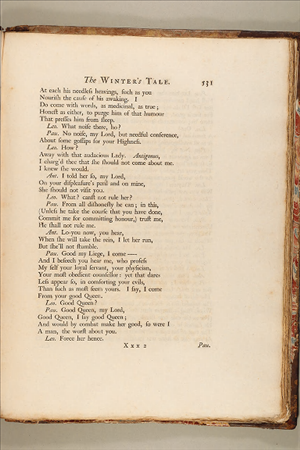 The WINTER's TALE. 531
At each his needless heavings, such as you
Nourish the cause of his awaking. I
Do come with words, as medicinal, as true;
Honest as either, to purge him of that humour
That presses him from sleep.
Leo. What noise there, ho?
Pau. No noise, my Lord, but needful conference,
About some gossips for your Highness.
Leo. How?
Away with that audacious Lady. Antigonus,
I charg'd thee that she should not come about me.
I knew she would.
Ant. I told her so, my Lord,
On your displeasure's peril and on mine,
She should not visit you.
Leo. What? canst not rule her?
Pau. From all dishonesty he can; in this,
(Unless he take the course that you have done,
Commit me for committing honour,) trust me,
He shall not rule me.
Ant. Lo-you now, you hear,
When she will take the rein, I let her run,
But she'll not stumble.
Pau. Good my Liege, I come —
And I beseech you hear me, who profess
My self your loyal servant, your physician,
Your most obedient counsellor: yet that dares
Less appear so, in comforting your evils,
Than such as most seem yours. I say, I come
From your good Queen.
Leo. Good Queen?
Pau. Good Queen, my Lord,
Good Queen, I say good Queen;
And would by combat make her good, so were I
A man, the worst about you.
Leo. Force her hence.
Xxx 2 Pau.